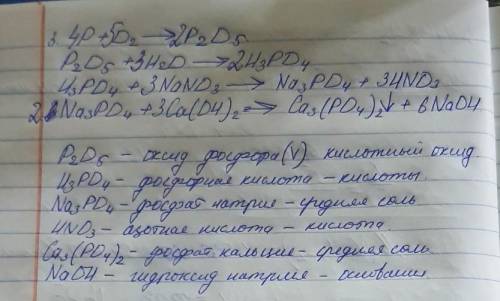 3. 4P + 5O₂ → 2P₂O₅
P₂O₅ + 3H₂O → 2H₃PO₄
H₃PO₄ + 3NaNO₃ → Na₃PO₄ + 3HNO₃
2Na₃PO₄ + 3Ca(OH)₂ → Ca₃(PO₄)₂↓ + 6NaOH
P₂O₅ – оксид фосфора (V) кислотный оксид.
H₃PO₄ – фосфорная кислота – кислоты
Na₃PO₄ – фосфат натрия – средняя соль
HNO₃ – азотная кислота – кислота.
Ca₃(PO₄)₂ – фосфат кальция – средняя соль
NaOH – гидроксид натрия – основания